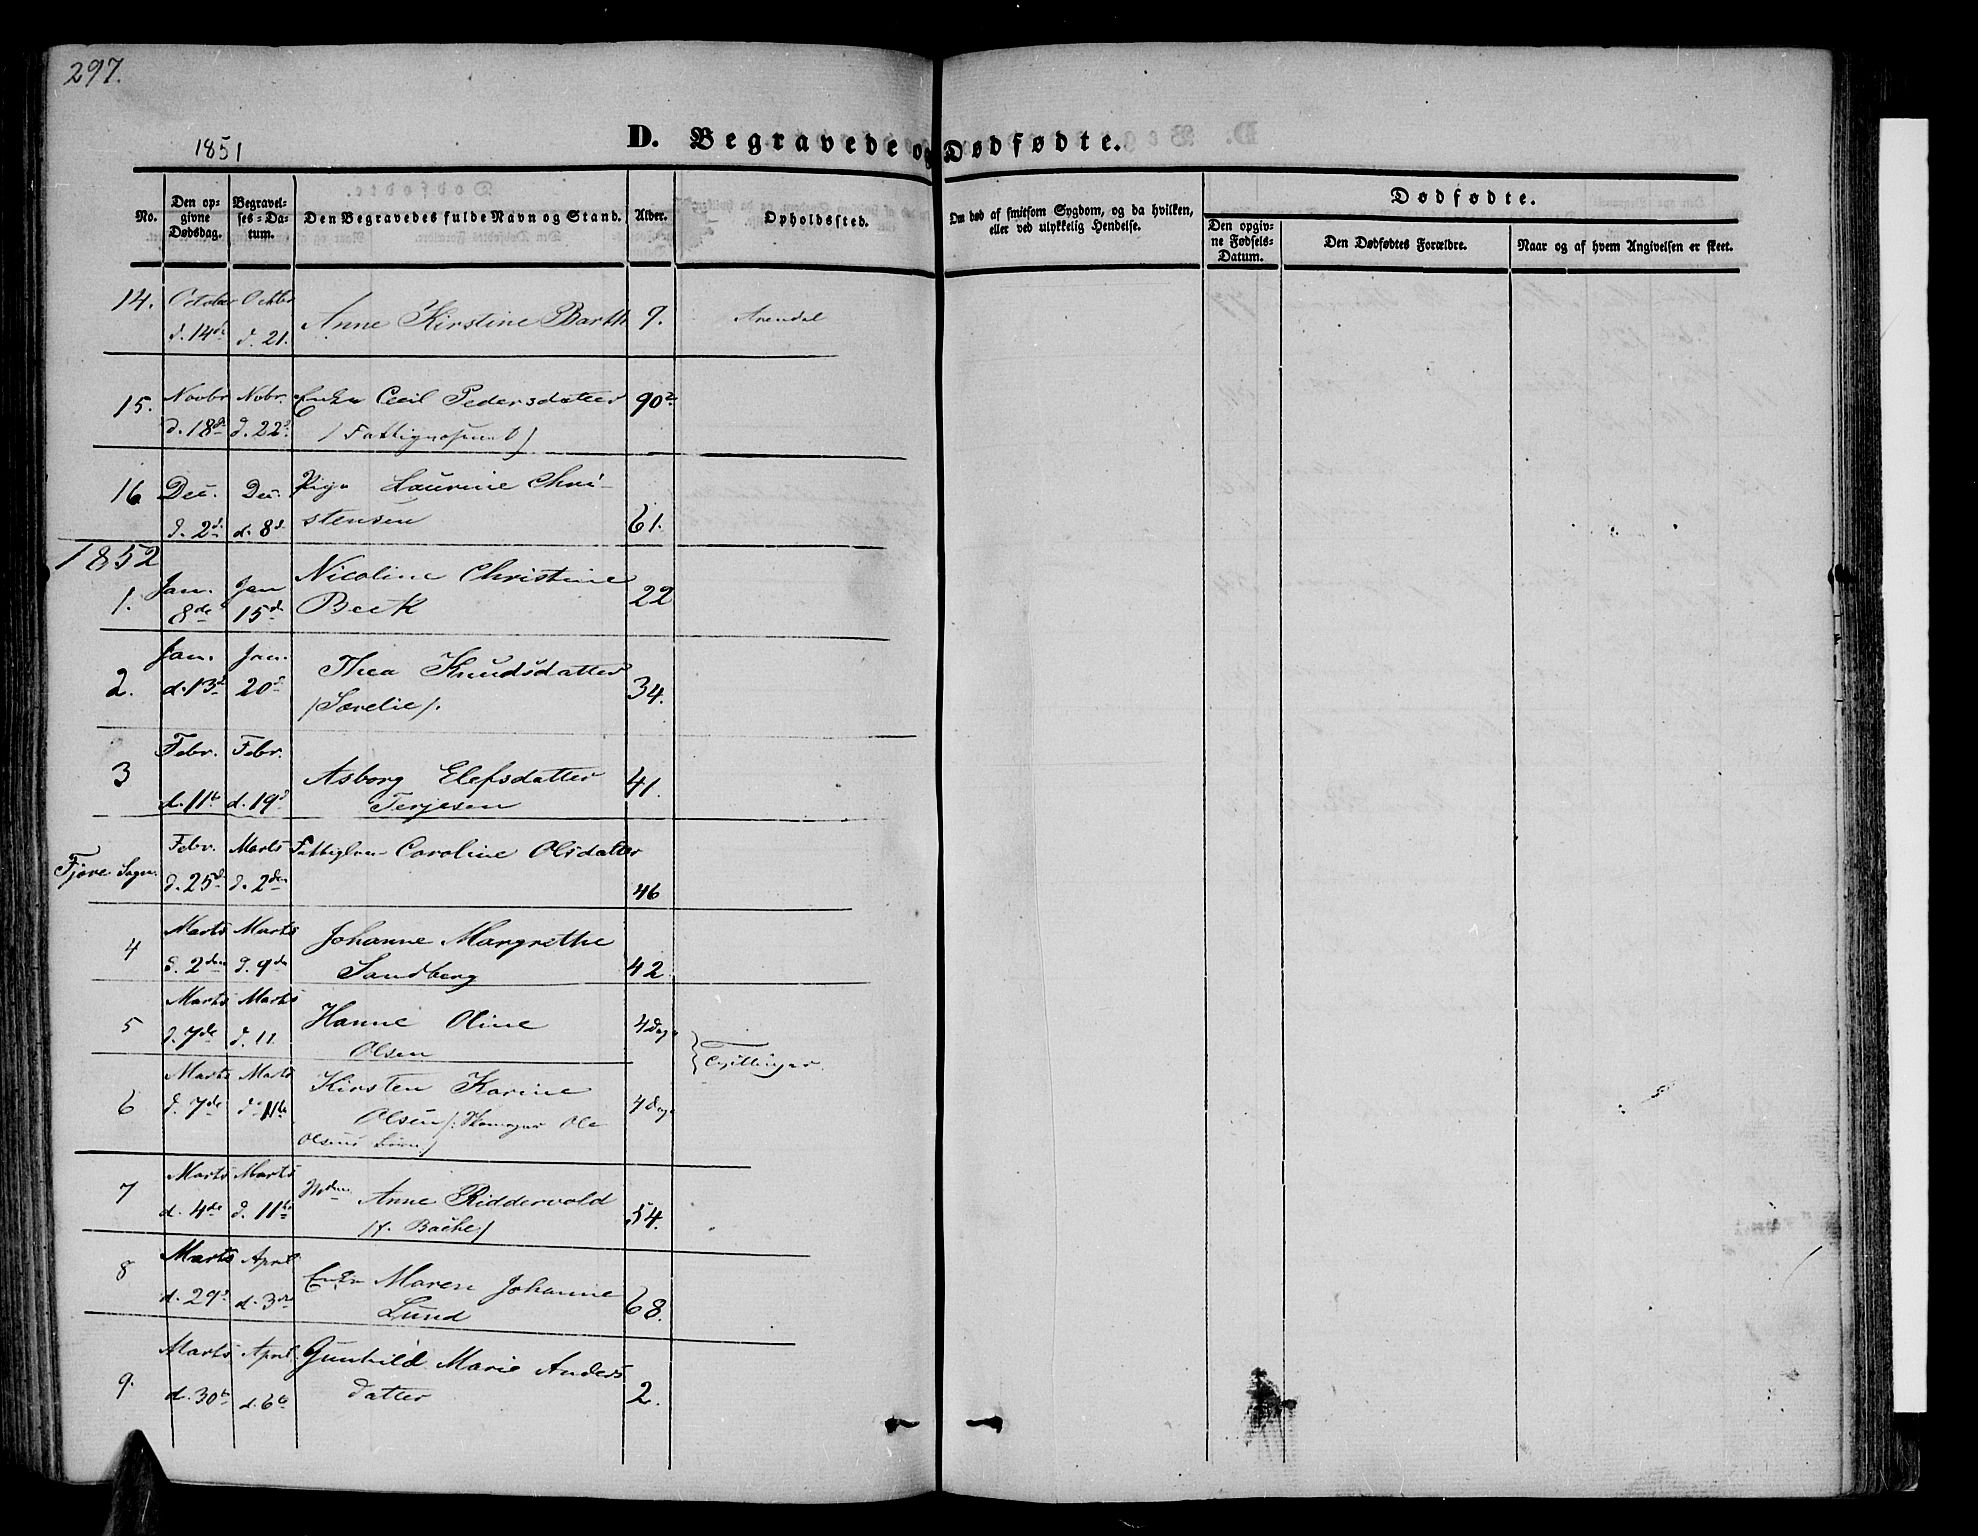 297.
1851
D. Begravede og Dødfødte.
No.
Den opgivne Dødsdag.
Begravelses-Datum.
Den Begravedes fulde Navn og Stand.
Alder.
Opholdssted.
Om død af smitsom Sygdom, og da hvilken, eller ved ulykkelig Hendelse.
Dødfødte.
Den opgivne Fødsels-Datum.
Den Dødfødtes Forældre.
Naar og af hvem Angivelsen er skeet.
14. October Octbr
d. 14de d. 21. Anne Kirstine Barth 9. Arendal
15. Novbr Nobr. Enke Cecil Pedersdatter 90
d. 18d d. 22d
16 Dec. Dec. Pige Laurine Chri-
d. 2d d. 8d stensen 61.
1852
Jan. Jan Nicoline Christine
1. 8de 15d Beck 22
Jan. Jan. Thea Knudsdatter
2. d. 13d 20d /Sørelie/. 34.
Febr. Febr.
3 Asborg Elefsdatter 41.
d. 11te d. 19d Terjesen
Febr. Marts Caroline Olsdatter
Fjære Sogn. d. 25d d. 2den 46
Marts Marts Johanne Margrethe
4 d. 2den d. 9de Sandberg 42
Marts Marts
5 Hanne Oline 4 Dage
d. 7de d. 11. Olsen
Tvillinger
Marts Marts Kirsten Karine
6 d. 7de d. 11te Olsen /: Ole 4 Dage
Olsens Børn/
Marts Marts
7 Anne Riddervold
d. 4de d. 11te /f. Bache/ 54.
Marts April
8 Enke Maren Johanne
d. 29d d. 3die Lund 68.
Marts April Gunhild Marie Anders
9. d. 30te d. 6te datter 2.